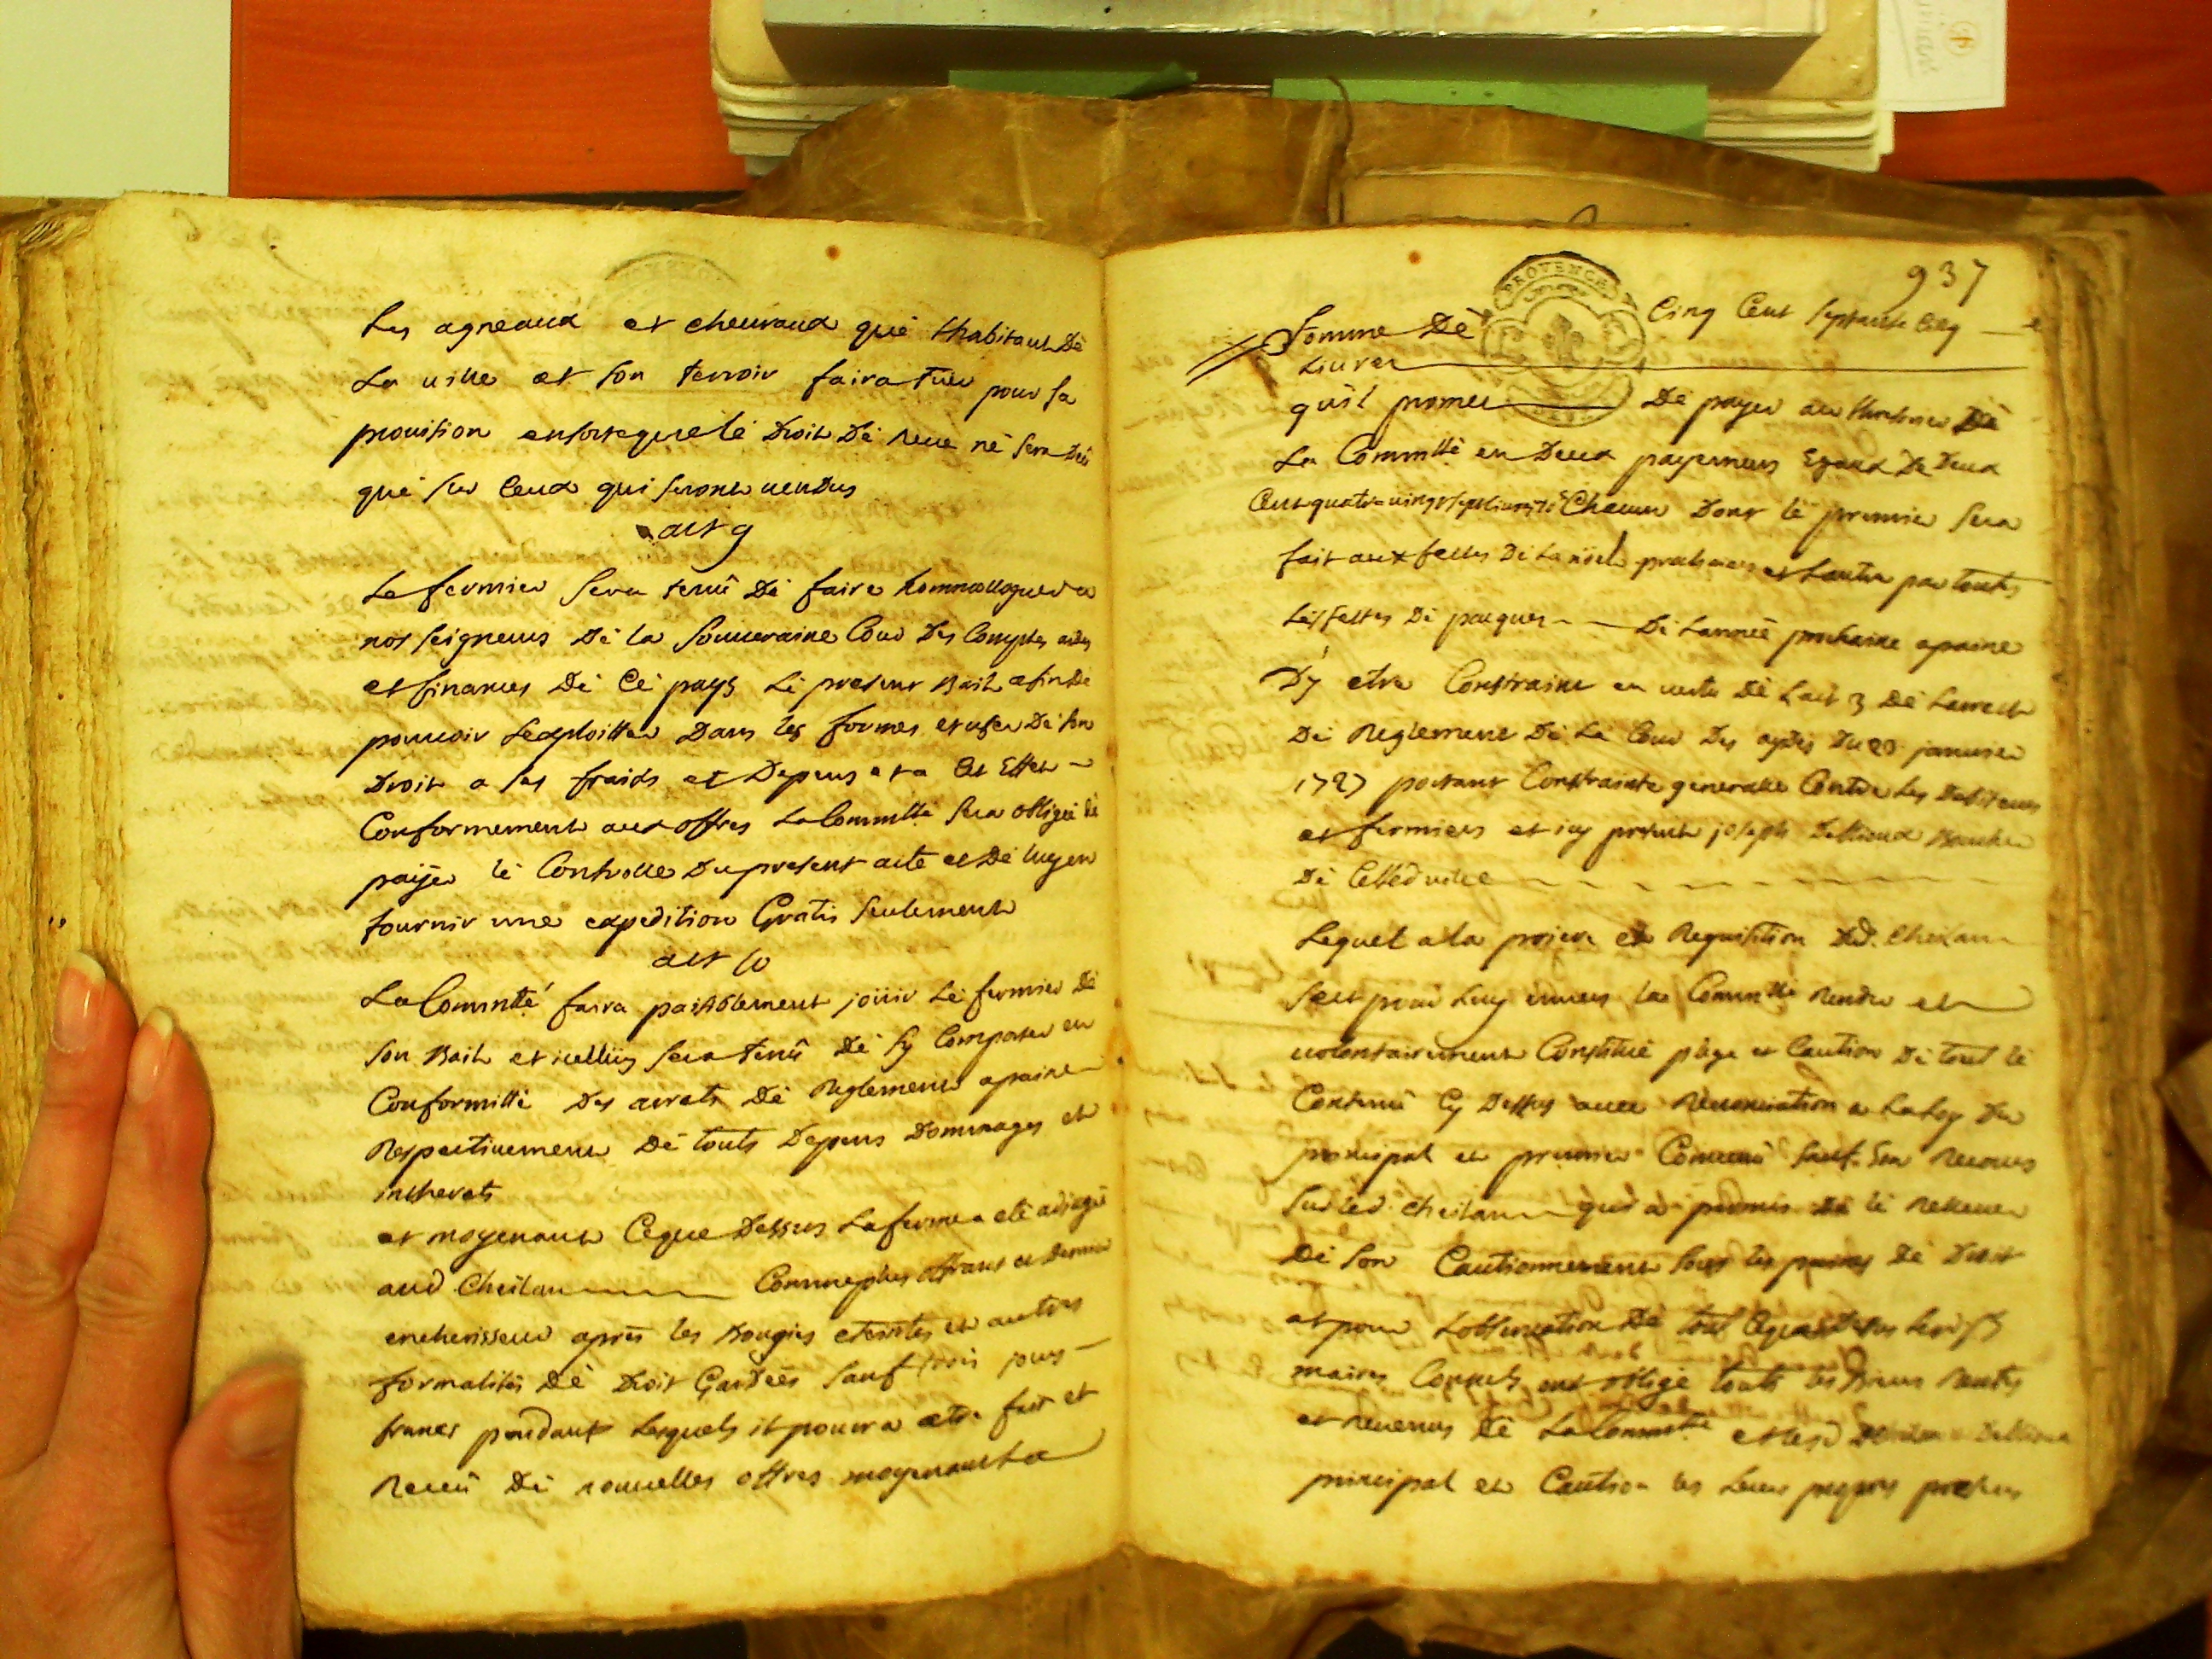 Les agneaux et cheuraux que lhabitant De
La ville et son terroir faira tuer pour sa
prouision ensorteque le Droit De reue ne sera deu
que sur Ceux qui seront uendus
art 9
Le fermier sera tenû De faire hommologuer a
nos seigneurs De la Souueraine Cour Des Comptes aides
et finances De Ce pays Le present Bail afin De
pouuoir Lexploitter Dans les formes et user De son
Droit a ses fraids et Depens et a Cet Effet
Conformement aux offres La Commtté sera obligée de
paÿer le Controlle Du present acte et De luy en
fournir une expedition Gratis seulement
art 10
La Commtté faira paisiblement joüir Le fermier De
son Bail et icelluy sera tenû De sy Comporter en
Conformitté Des arrets De Reglement apaine
Respectiuement De touts Depens Dommages et
intherets
et moyenant Ceque Dessus La ferme a eté adjugée
aud Cheilan Comme plus offrant et Dernier
encherisseur aprés les Bougies eteintes et autres
formalités De Droit Gardées sauf trois jours
francs pendant Lesquels il pourra etre fait et
Receu De nouuelles offres moyenant La
937
PROVENCE
Somme De Cinq Cent septante
Liures
quil promet De payer au thresorier De
La Commtté en Deux payemens Egaux De Deux
Cent quatre uingt sept liures Chacun Dont le premier sera
fait aux festes De La nöel prochaines et Lautre par toutes
Les festes De pacques De Lannée prochaine apaine
Dy etre Constraint en uertu De Lart 3 De Larrest
De Reglement De La Cour Des aydes Du 23 januier
1727 portant Constrainte generalle Contre Les Debiteurs
et fermiers et icy present joseph Boucher
De Cette uille
Lequel a la priere et Requisition Dud. Cheilan
sest pour Luy enuers la Commtté Rendu et
uolontairement Constitué plege et Caution De tout le
Contenû Cy Dessus auec Renonciation a La Loy Du
principal et premier Conuenû sauf son Recours
sur led. Cheilan qui a promis De le Releuer
De son Cautionnement sous les peines De Droit
et pour Lobseruation De tout Ceque Dessus Lesd srs
maires Consuls ont obligé touts les Biens Rentes
et Reuenus De La Commtté et lesd Cheilan
principal et Caution les Leurs propres presens